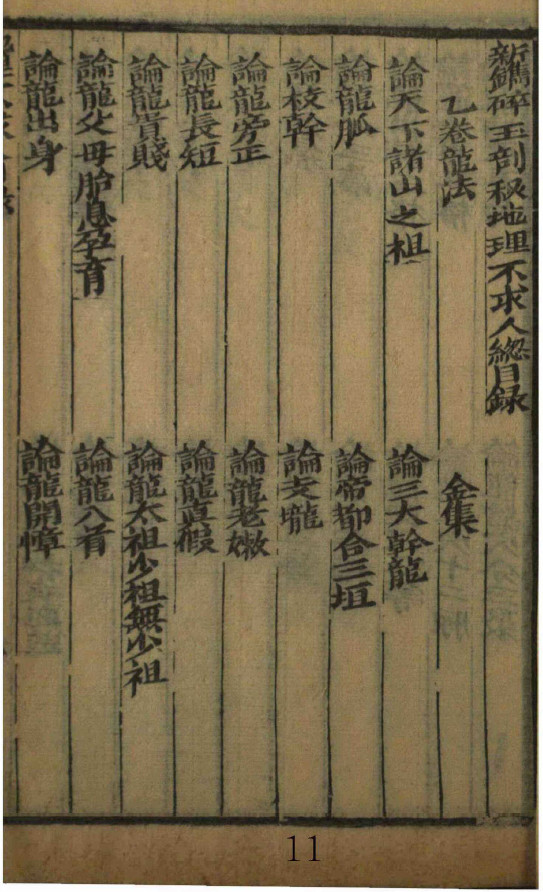 新鐫碎玉剖秘地理不求人緫目録
乙卷龍法　金集
論天下諸山之祖　論三大幹龍
論龍脈　論帝都合三垣
論枝幹　論支壠
論龍旁正　論龍老嫩
論龍長短　論龍真假
論龍貴賤　論龍太祖少祖無少祖
論龍父母胎息孕育　論龍入首
論龍出身　論龍開幛
11